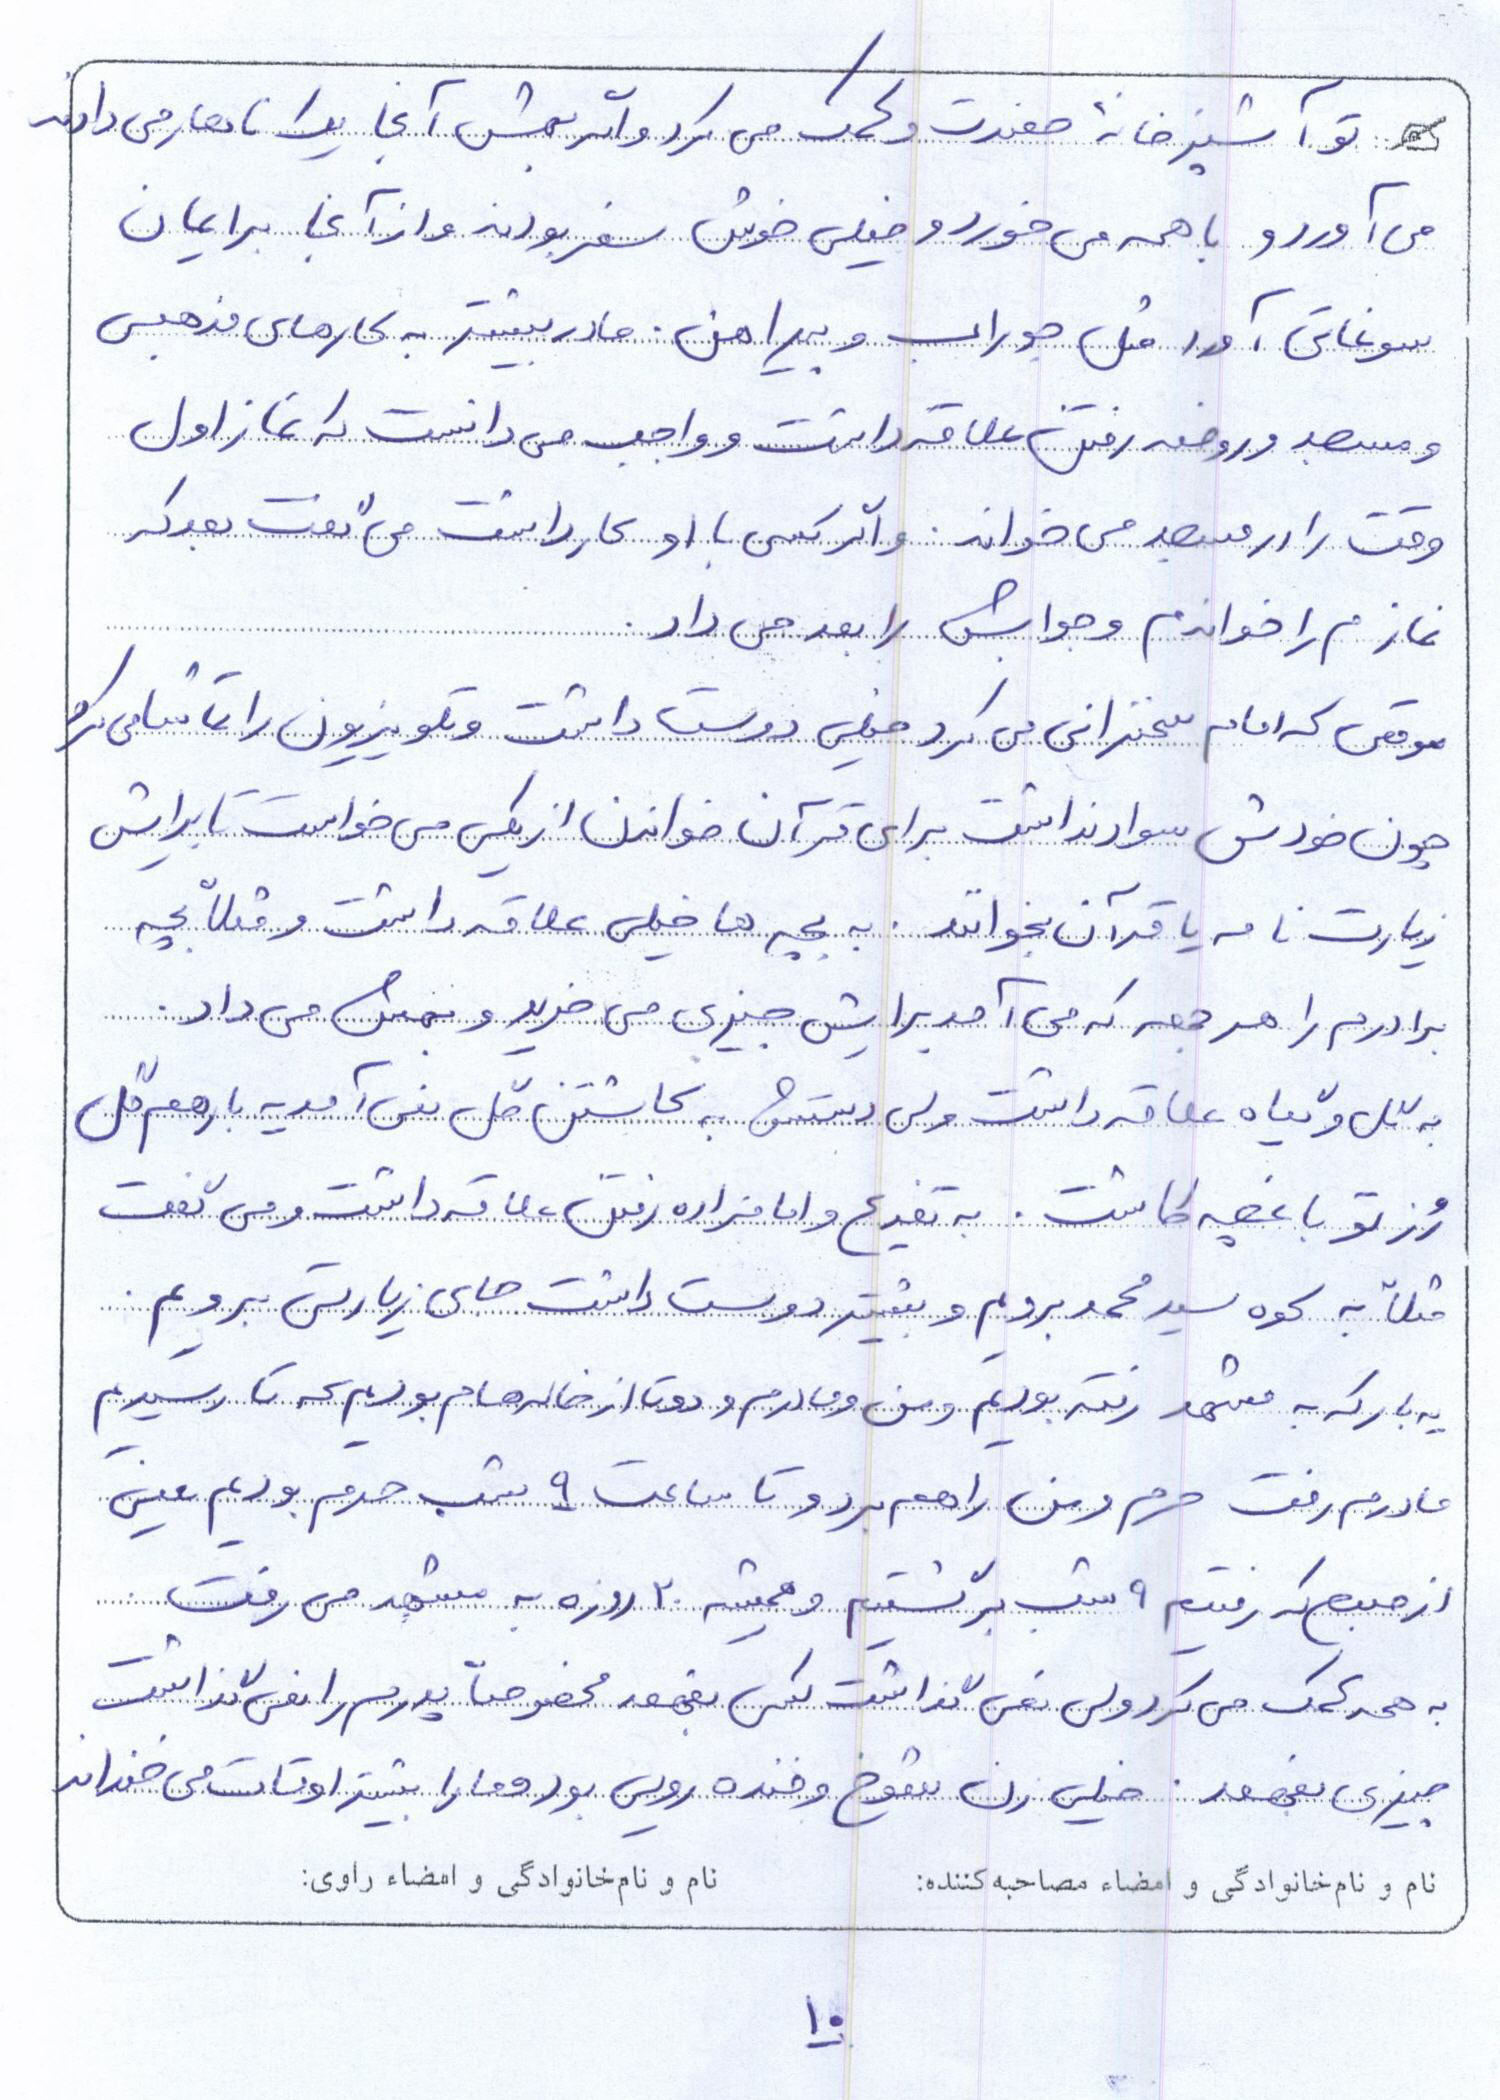 تو آشپزخانهٔ حضرت و کمک می کرد و اگر بهش آنجا یک ناهار می دادند
می آورد و با همه می خورد و خیلی خوش سفر بودند و از آنجا برایمان
سوغاتی آورد مثل جوراب و پیراهن. مادر بیشتر به کارهای مذهبی
و مسجد و روضه رفتن علاقه داشت و واجب می دانست که نماز اول
وقت را در مسجد می خواند. و اگر کسی با او کار داشت می گفت بعد که
نمازم را خواندم و جوابش را بعد می داد.
موقعی که امام سخنرانی می کرد خیلی دوست داشت و تلویزیون را تماشا می کرد
چون خودش سواد نداشت برای قرآن خواندن از یکی می خواست تا برایش
زیارت نامه یا قرآن بخواند. به بچه ها خیلی علاقه داشت و مثلاً بچه
برادرم را هر جمعه که می آمد برایش چیزی می خرید و بهش می داد.
به گل و گیاه علاقه داشت ولی دستش به کاشتن گل نمی آمد یه بار هم گل
رُز تو باغچه کاشت. به تفریح و امامزاده رفتن علاقه داشت و می گفت
مثلاً به کوه سید محمد برویم و بیشتر دوست داشت جای زیارتی برویم.
یه بار که به مشهد رفته بودیم و من و مادرم و دوتا از خاله هام بودیم که تا رسیدیم
مادرم رفت حرم و من را هم برد و تا ساعت ۹ شب حرم بودیم یعنی
از صبح که رفتیم ۹ شب برگشتیم و همیشه ۲۰ روزه به مشهد می رفت.
به همه کمک می کرد ولی نمی گذاشت کسی بفهمد مخصوصاً پدرم را نمی گذاشت
چیزی بفهمد. خیلی زن شوخ و خنده رویی بود و ما را بیشتر اوقات می خنداند
نام و نام‌خانوادگی و امضاء مصاحبه‌کننده: نام و نام‌خانوادگی و امضاء راوی:
۱۰